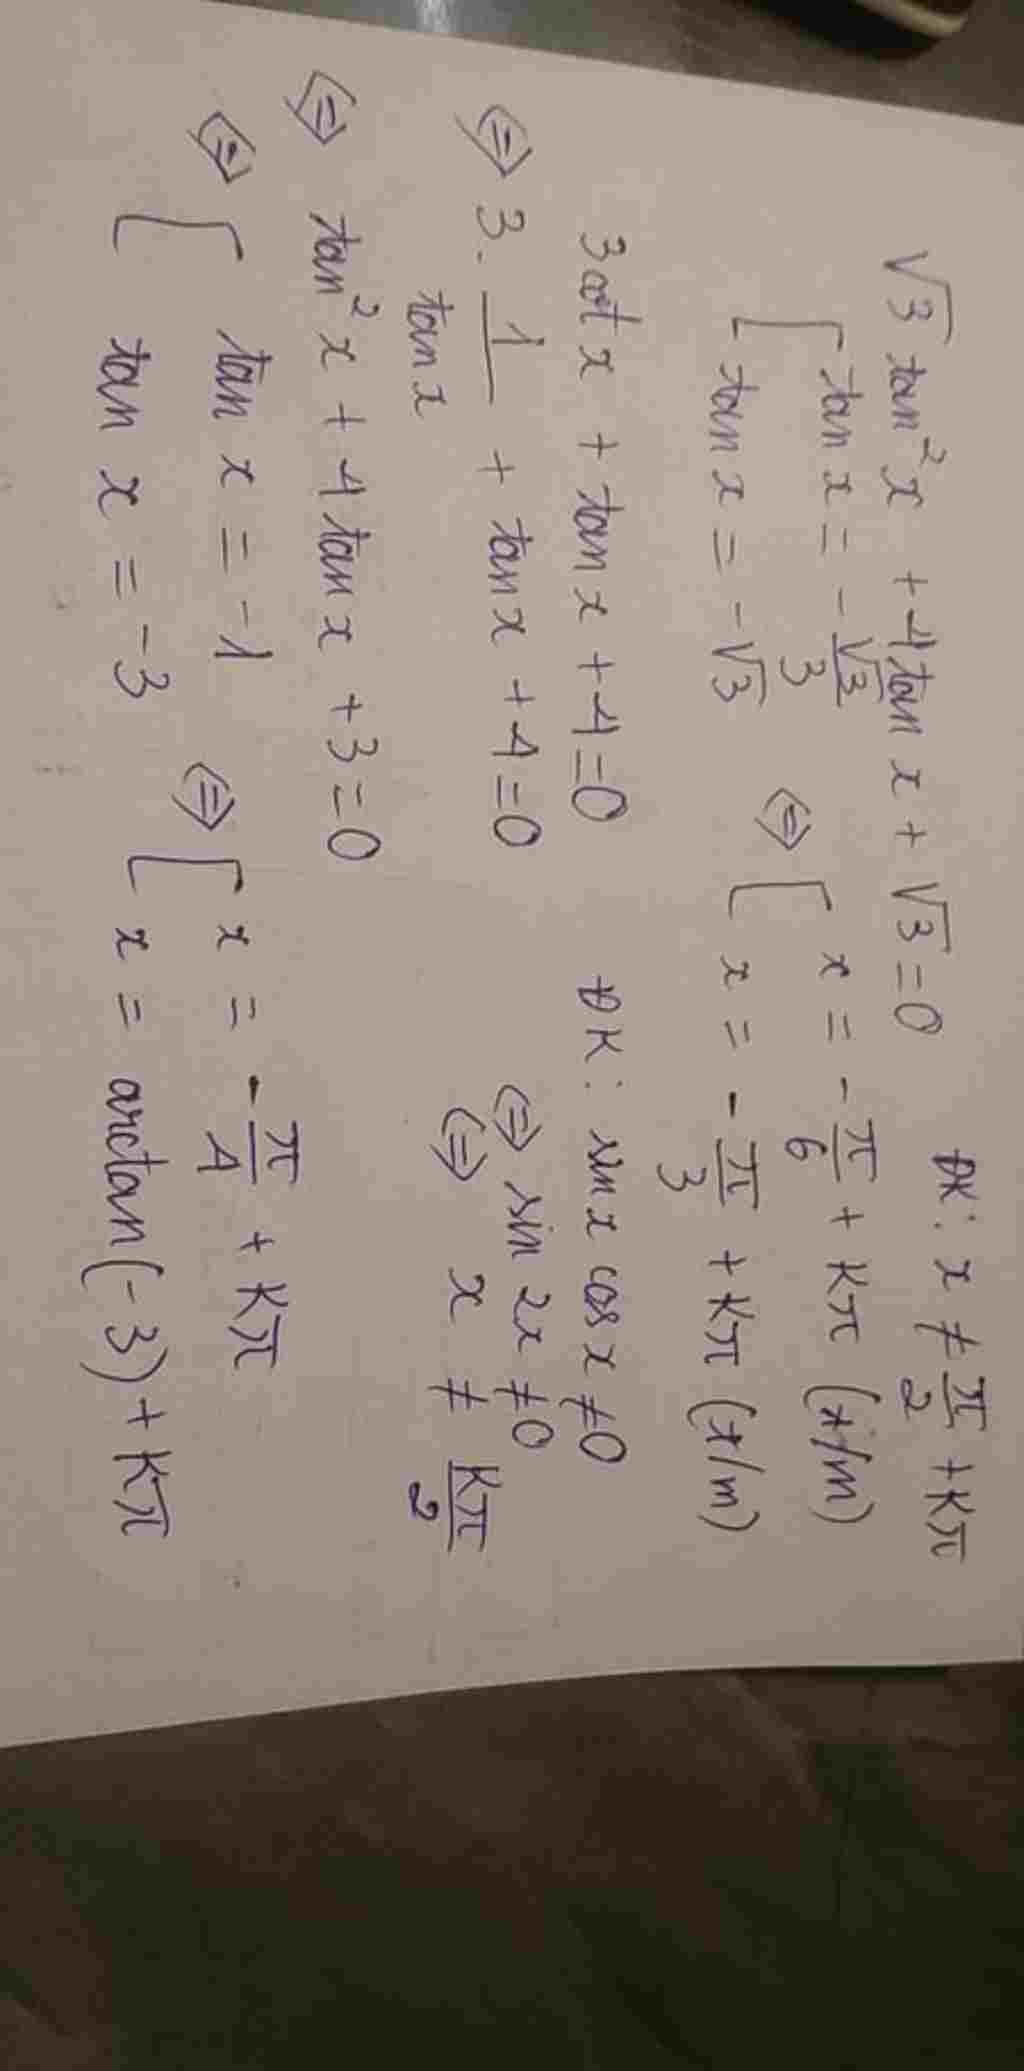 √3 tan²x + 4tan x + √3 = 0    ĐK: x ≠ π/2 + kπ
[ tan x = -√3/3 ⇔ [ x = -π/6 + kπ (t/m)
[ tan x = -√3    [ x = -π/3 + kπ (t/m)
3cot x + tan x + 4 = 0    ĐK: sin x cos x ≠ 0
⇔ 3. 1/tan x + tan x + 4 = 0    ⇔ sin 2x ≠ 0
⇔ x ≠ kπ/2
⇔ tan²x + 4tan x + 3 = 0
⇔ [ tan x = -1 ⇔ [ x = -π/4 + kπ
[ tan x = -3    [ x = arctan(-3) + kπ